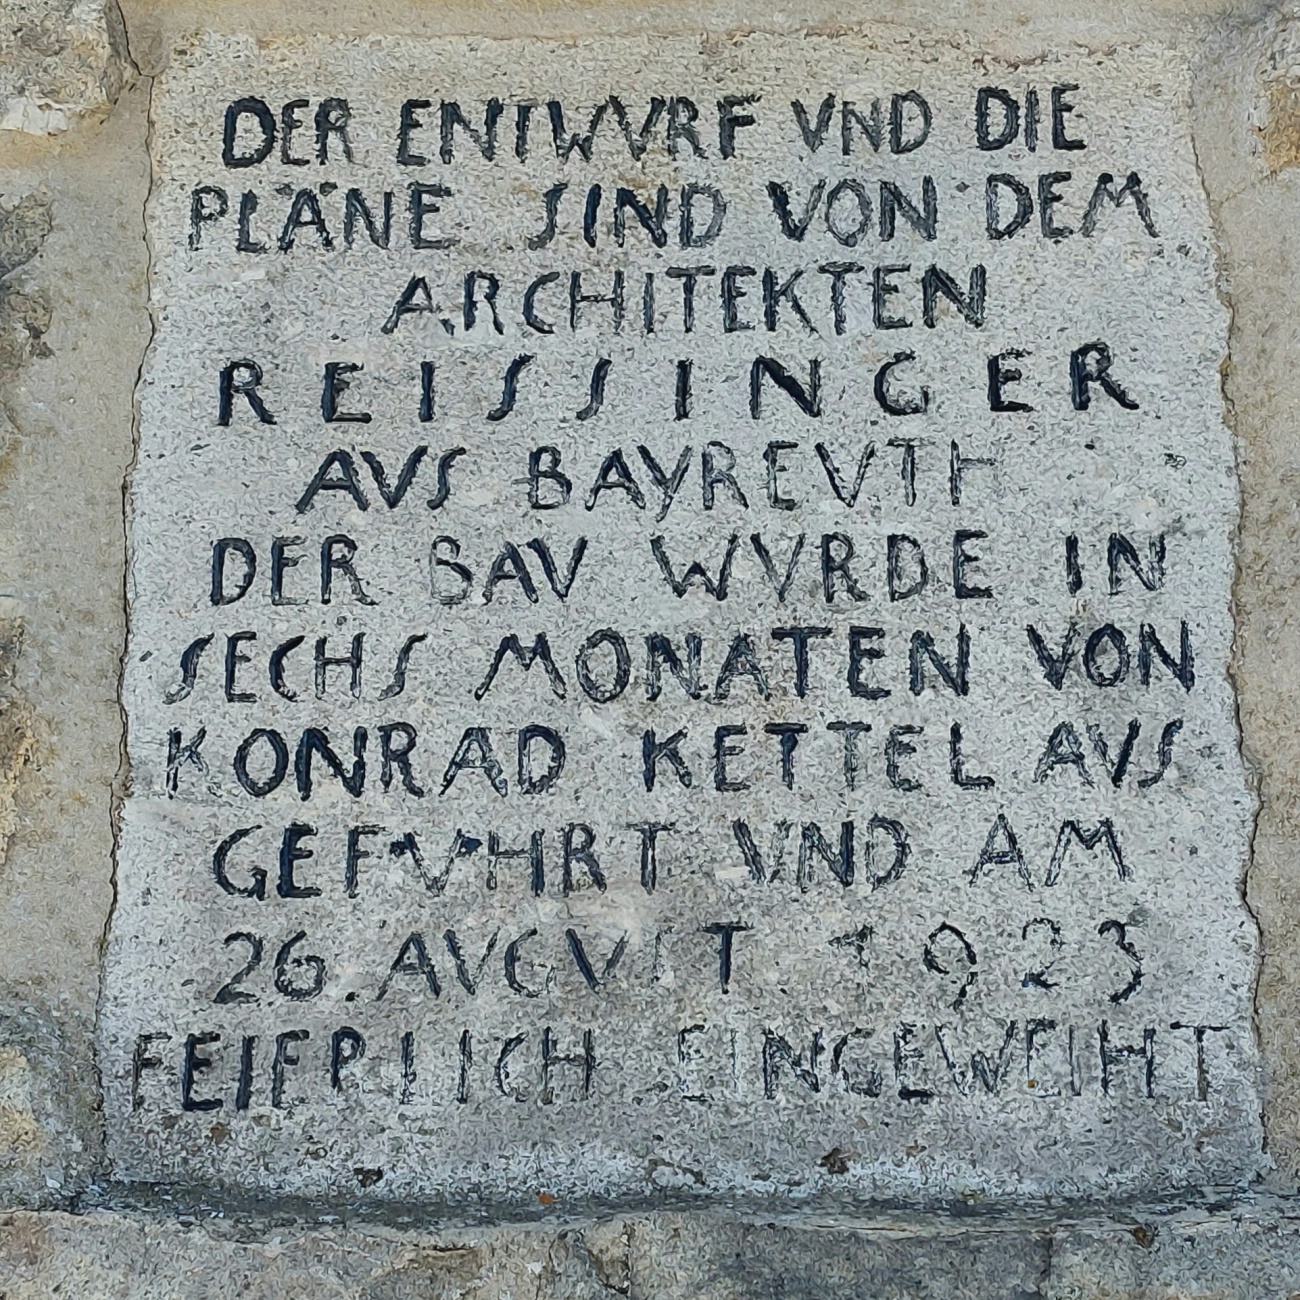 DER ENTWVRF VND DIE
PLÄNE SIND VON DEM
ARCHITEKTEN
REISSINGER
AVS BAYREVTH
DER BAV WVRDE IN
SECHS MONATEN VON
KONRAD KETTEL AVS
GEFV̈HRT VND AM
26. AVGVST 1923
FEIERLICH EINGEWEIHT